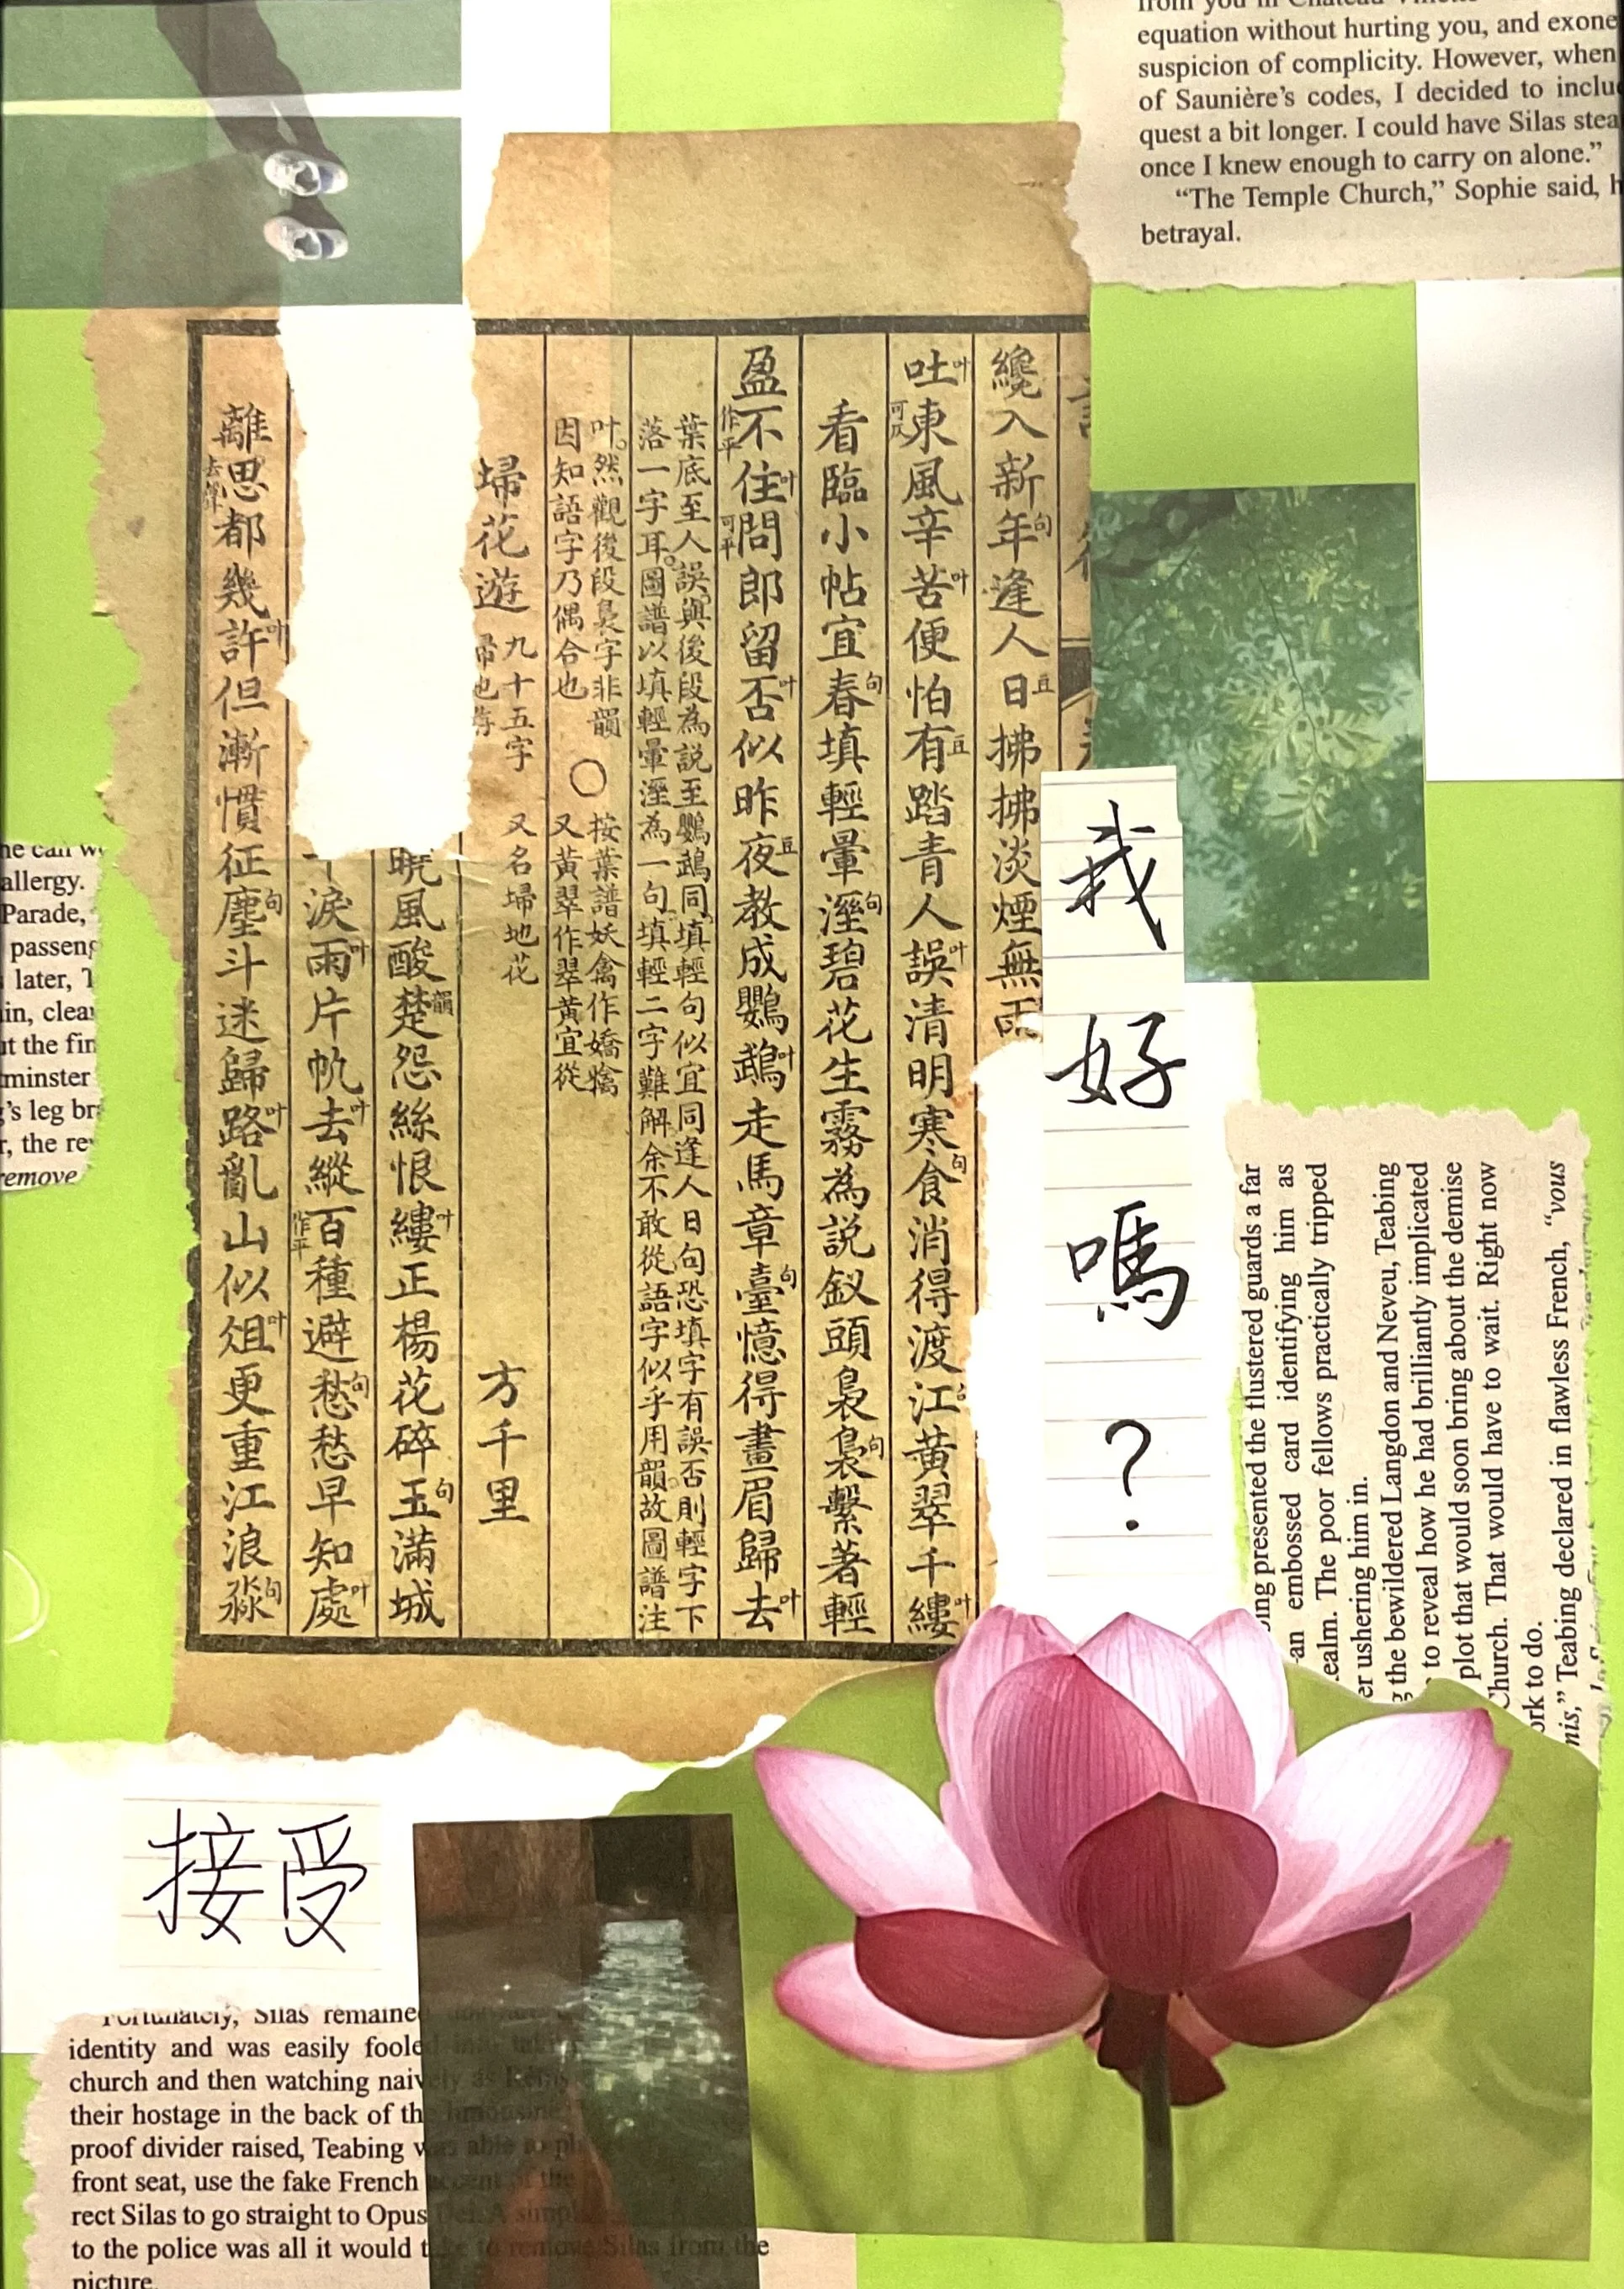 equation without hurting you, and exone
suspicion of complicity. However, when
of Saunière's codes, I decided to inclu
quest a bit longer. I could have Silas stea
once I knew enough to carry on alone.”
“The Temple Church,” Sophie said, h
betrayal.
纔入新年句逢人日豆拂拂淡煙無雨
吐叶東風辛苦叶便怕有豆踏青人誤叶清明寒食句消得渡江黃翠千縷叶
看臨小帖宜春句填輕暈溼句碧花生霧為説釵頭裊裊句繫著輕
盈不作平住叶問可平郎留否叶似昨夜豆教成鸚鵡叶走馬章臺句憶得畫眉歸去叶
葉底至人誤與後段為説至鸚鵡同填輕句似宜同逢人日句恐填字有誤否則輕字下
落一字耳。圖譜以填輕暈溼為一句填輕二字難解余不敢從語字似乎用韻故圖譜注
叶。然觀後段裊字非韻
因知語字乃偶合也
○
按葉譜妖禽作嬌擒
又黃翠作翠黃宜從
埽花遊 九十五字 又名埽地花 方千里
曉風酸楚韻怨絲恨縷叶正楊花碎玉句滿城
淚雨叶片帆去叶縱百作平種避愁句愁早知處叶
離思去聲都幾許叶但漸慣征塵句斗迷歸路叶亂山似俎叶更重江浪淼句
我好嗎？
he can w
allergy.
Parade,
passeng
later, T
in, clea
ut the fin
minster
g's leg br
r, the re
remove
ing presented the flustered guards a far
an embossed card identifying him as
ealm. The poor fellows practically tripped
er ushering him in.
g the bewildered Langdon and Neveu, Teabing
to reveal how he had brilliantly implicated
plot that would soon bring about the demise
Church. That would have to wait. Right now
ork to do.
nis,” Teabing declared in flawless French, “vous
接受
Fortunately, Silas remained
identity and was easily fooled into
church and then watching naively as Rémy
their hostage in the back of the limousine
proof divider raised, Teabing was able to ph
front seat, use the fake French accent of the
rect Silas to go straight to Opus Dei. A simpl
to the police was all it would take to remove Silas from the
picture.